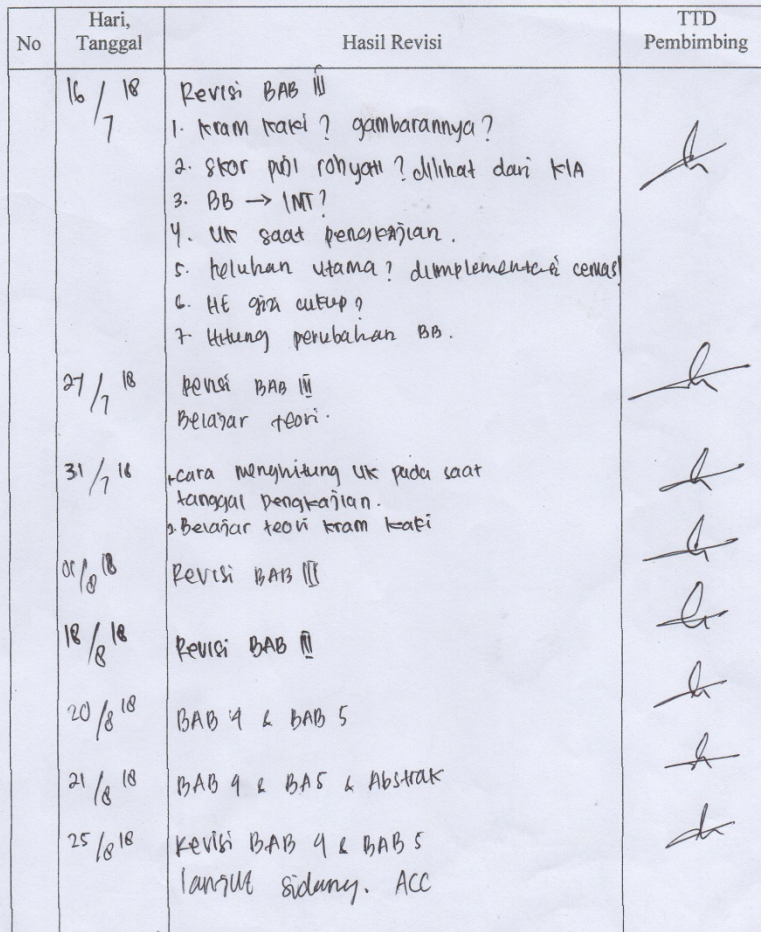 No
Hari,
Tanggal
Hasil Revisi
TTD
Pembimbing
16/7 18
Revisi BAB III
1. Kram kaki? gambarannya?
2. Skor puji rohyati? dilihat dari KIA
3. BB → IMT?
4. UK saat pengkajian.
5. keluhan utama? cemas!
6. HE gizi cukup?
7. Hitung perubahan BB.
27/7 18
Revisi BAB III
Belajar teori.
31/7 18
cara menghitung UK pada saat
tanggal pengkajian.
2. Belajar teori kram kaki
/8 18
Revisi BAB III
18/8 18
Revisi BAB III
20/8 18
BAB 4 & BAB 5
21/8 18
BAB 4 & BA5 & Abstrak
25/8 18
Revisi BAB 4 & BAB 5
lanjut sidang. ACC